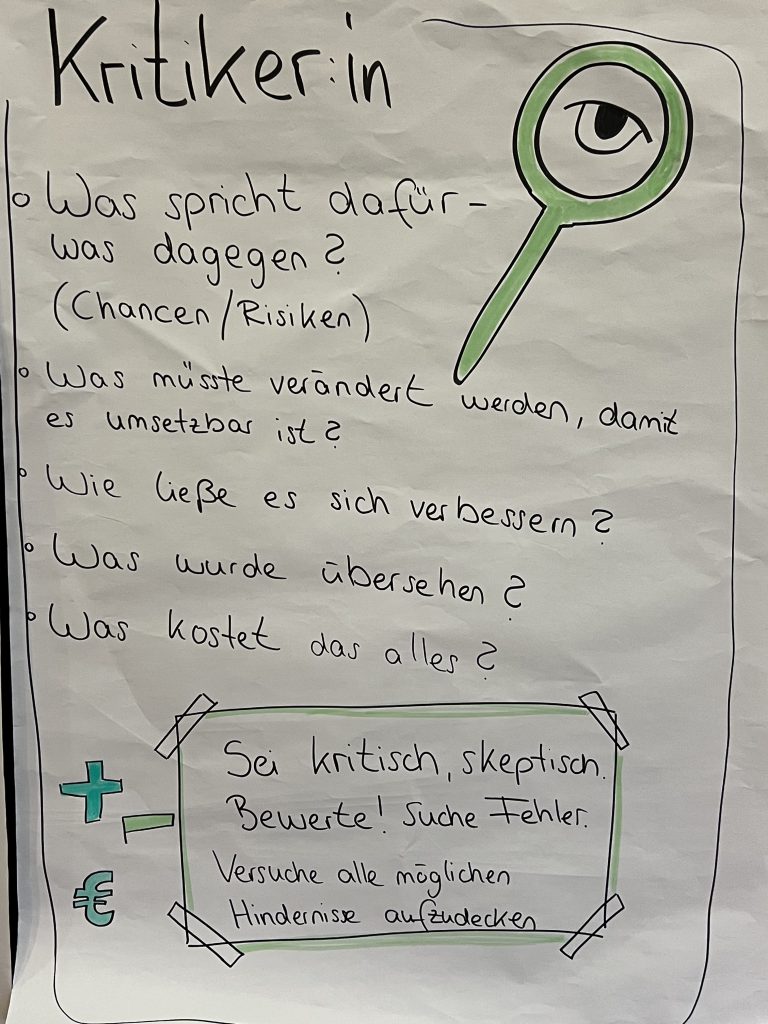 Kritiker:in
Was spricht dafür -
was dagegen?
(Chancen/Risiken)
Was müsste verändert werden, damit
es umsetzbar ist?
Wie ließe es sich verbessern?
Was wurde übersehen?
Was kostet das alles?
Sei kritisch, skeptisch.
Bewerte! Suche Fehler.
Versuche alle möglichen
Hindernisse aufzudecken
+ -
€